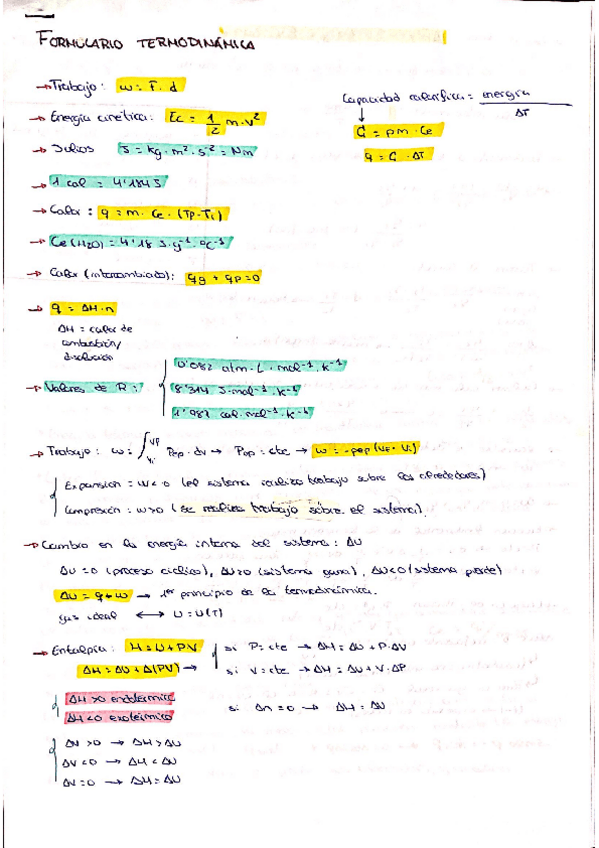 FORMULARIO TERMODINÁMICA
→ Trabajo: w = F · d
Capacidad calorífica = energía / ΔT
→ Energía cinética: Ec = 1/2 m · v²
C = pm · Ce
→ Julios J = kg · m² · s⁻² = Nm
q = C · ΔT
→ 1 cal = 4'184 J
→ Calor: q = m · Ce · (TF - Ti)
→ Ce (H2O) = 4'18 J · g⁻¹ · ºC⁻¹
→ Calor (intercambiado): qg + qp = 0
→ q = ΔH · n
ΔH = calor de
combustión/
disolución
0'082 atm · L · mol⁻¹ · K⁻¹
→ Valores de R: 8'314 J · mol⁻¹ · K⁻¹
1'987 cal · mol⁻¹ · K⁻¹
→ Trabajo: w = ∫ Vi VF Pep · dv → Pop = cte → w = - pep (VF - Vi)
Expansión = w < 0 (el sistema realiza trabajo sobre los alrededores)
Compresión: w > 0 (se realiza trabajo sobre el sistema)
→ Cambio en la energía interna del sistema: ΔU
ΔU = 0 (proceso cíclico), ΔU > 0 (sistema gana), ΔU < 0 (sistema pierde)
ΔU = q + w → 1er principio de la termodinámica.
gas ideal ↔ U = U(T)
→ Entalpía: H = U + PV si P = cte → ΔH = ΔU + P · ΔV
ΔH = ΔU + Δ(PV) → si V = cte → ΔH = ΔU + V · ΔP
ΔH > 0 endotérmico
ΔH < 0 exotérmico si Δn = 0 → ΔH = ΔU
ΔV > 0 → ΔH > ΔU
ΔV < 0 → ΔH < ΔU
ΔV = 0 → ΔH = ΔU